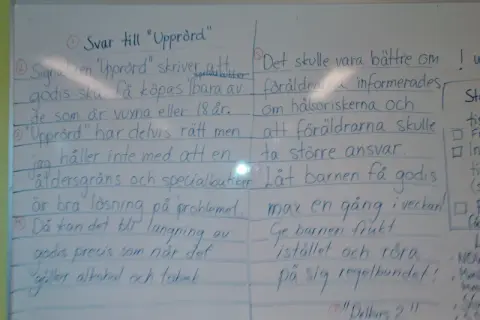 ① Svar till "Upprörd"
② Signaturen "Upprörd" skriver att
godis ska få köpas bara av
de som är vuxna eller 18 år.
③ "Upprörd" har delvis rätt men
jag håller inte med att en
åldersgräns och specialbutiker
är bra lösning på problemet.
Då kan det bli langning av
godis precis som när det
gäller alkohol och tobak
Det skulle vara bättre om
föräldrarna informerades
om hälsoriskerna och
att föräldrarna skulle
ta större ansvar
Låt barnen få godis
max en gång i veckan!
Ge barnen frukt
istället och röra
på sig regelbundet!
"Delkurs 2"
!